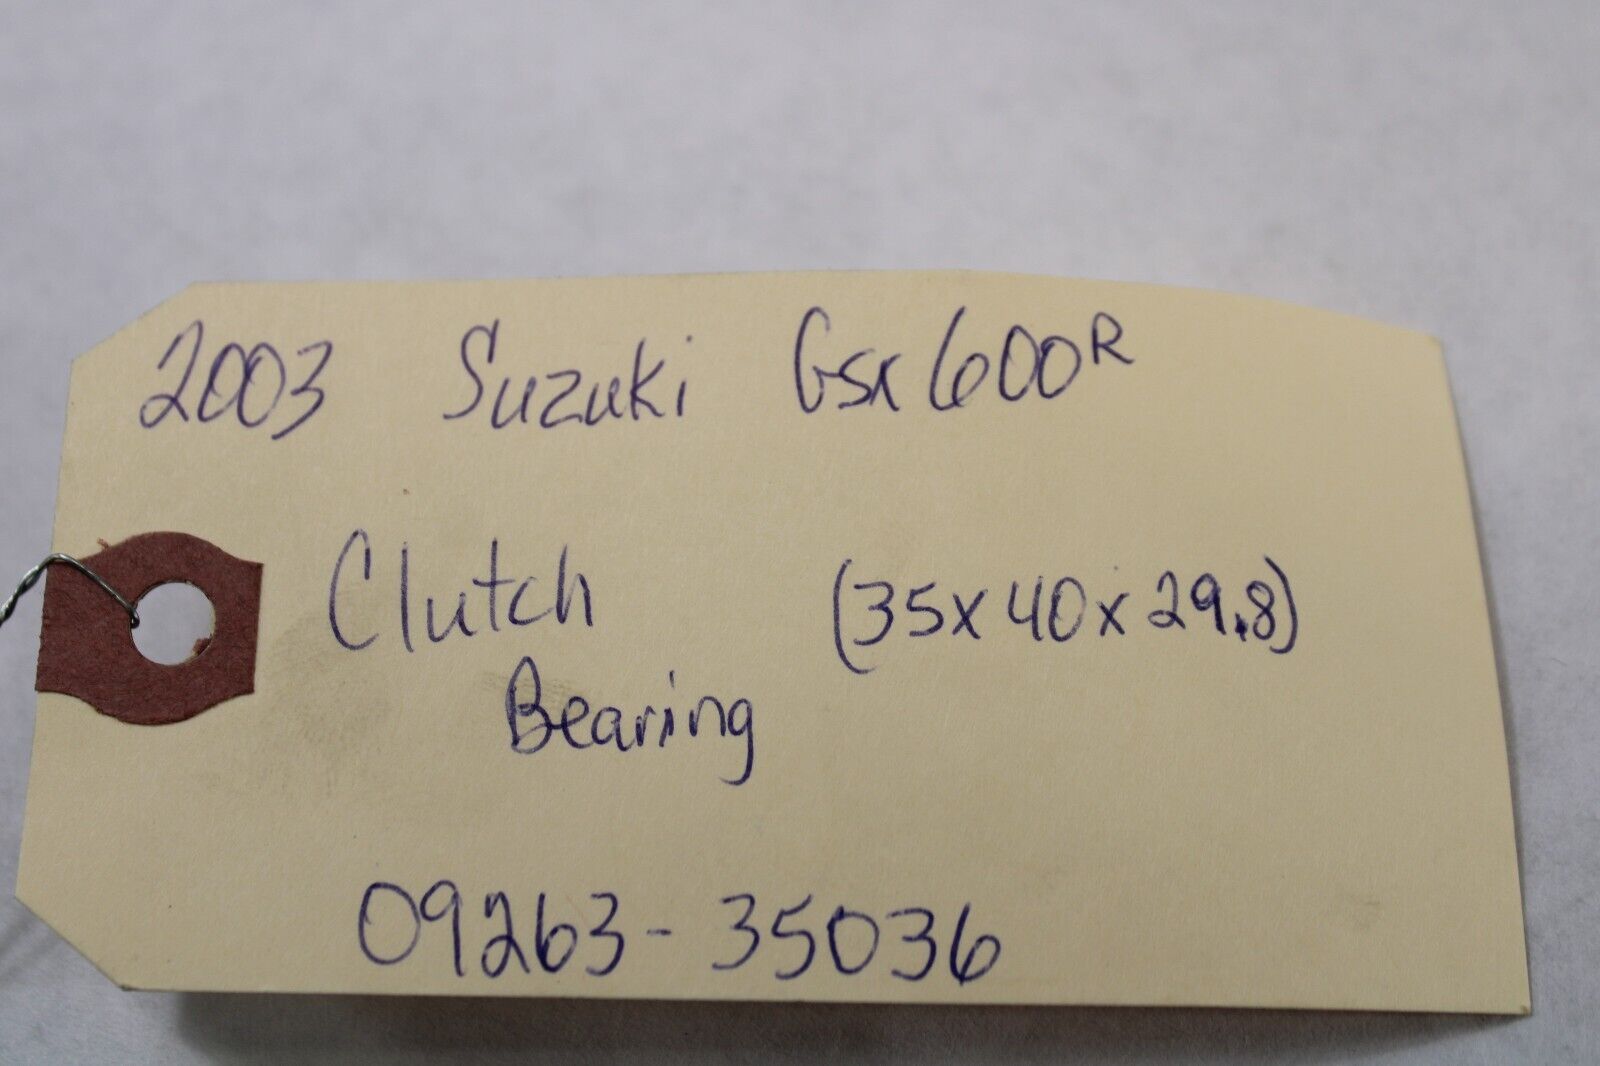 2003 Suzuki Gsx600R
Clutch (35x40x29.8)
Bearing
09263-35036